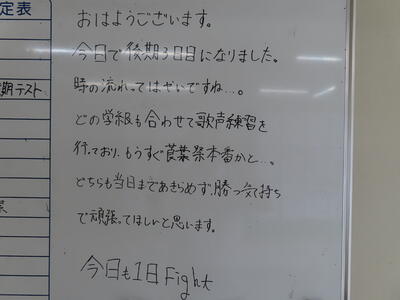 定表
期テスト
おはようございます。
今日で後期3日目になりました。
時の流れってはやいですね…。
どの学級も合わせて歌声練習を
行っており、もうすぐ萱葉祭本番かと…。
どちらも当日まであきらめず、勝つ気持ち
で頑張ってほしいと思います。
今日も1日Fight